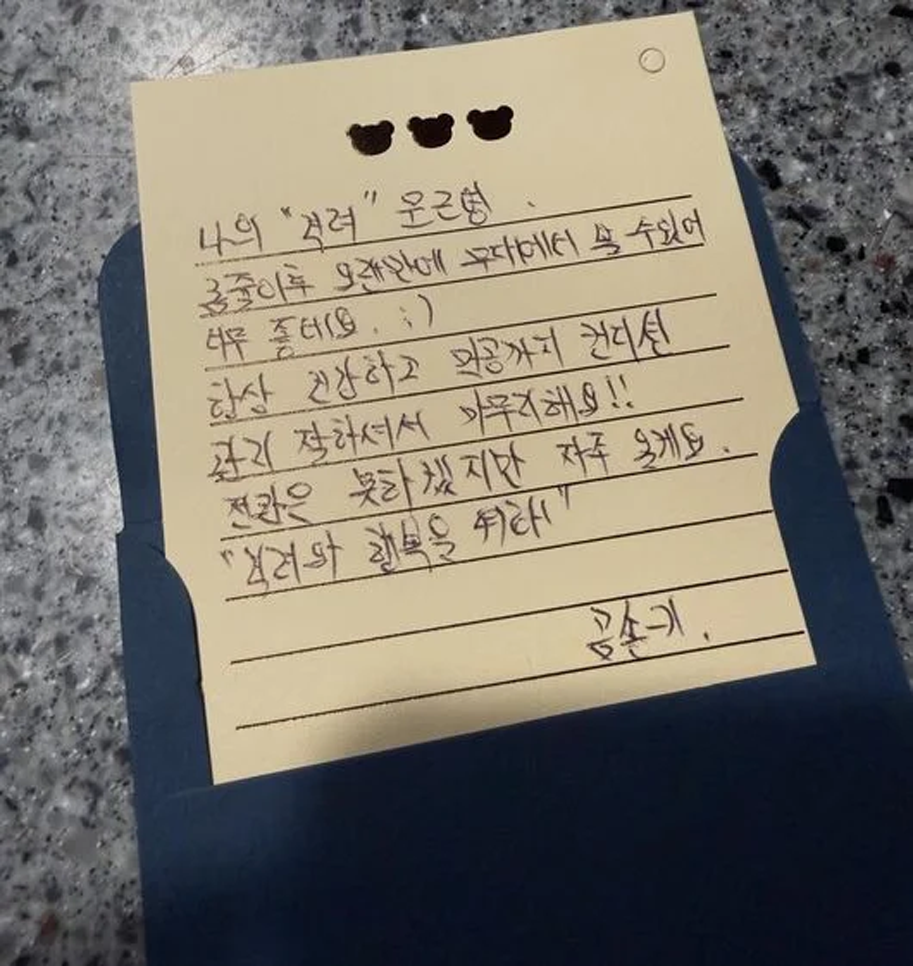 나의 "격려" 문근영.
공줄이후 오랜만에 무대에서 볼 수있어
너무 좋네요. :)
항상 건강하고 막공까지 컨디션
관리 잘하셔서 마무리해요!!
전관은 못하겠지만 자주 올게요.
"격려와 행복을 위하!"